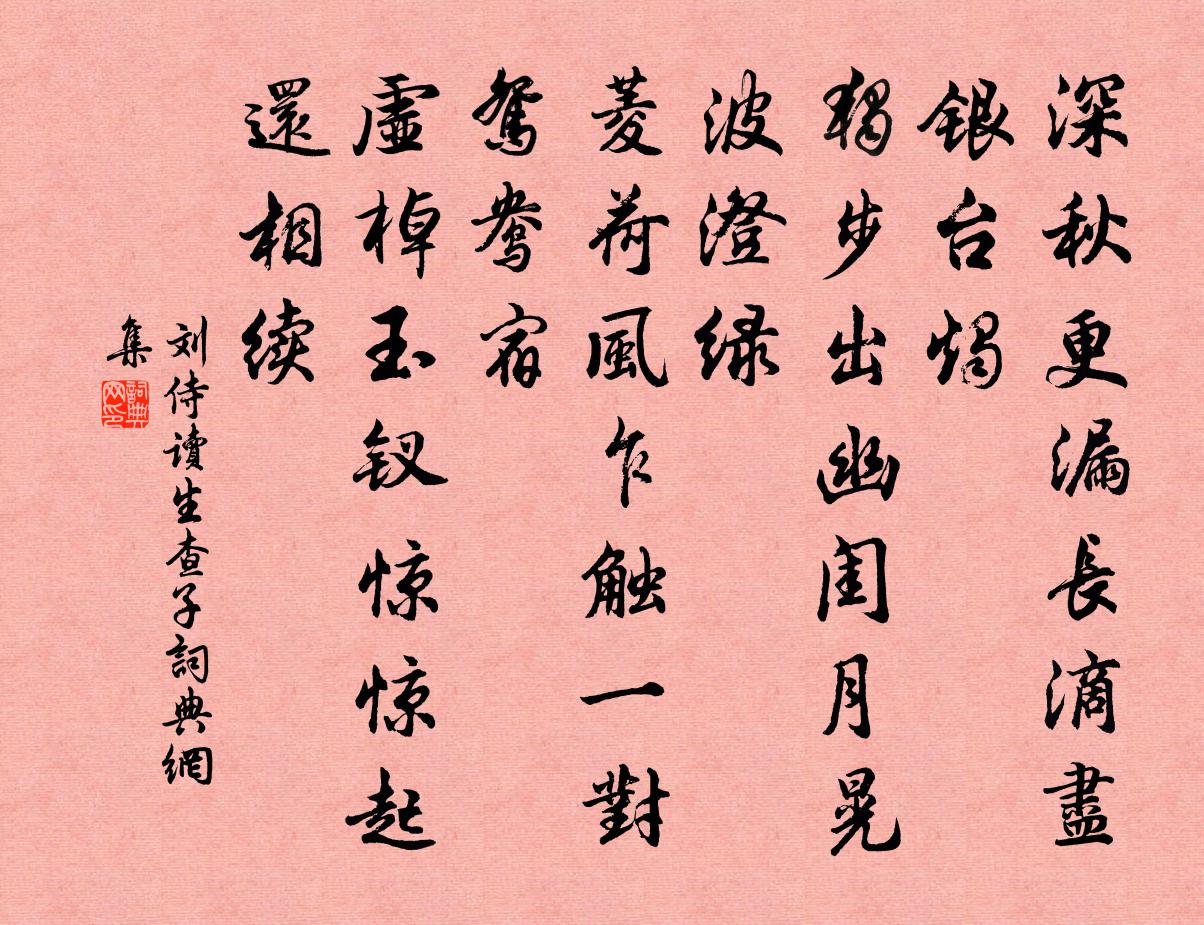 深秋更漏長滴盡
银台燭
獨步出幽闺月晃
波澄绿
菱荷風乍触一對
鴛鴦宿
虛棹玉钗惊惊起
還相续
刘侍讀生查子詞典網
集
詞典
网印